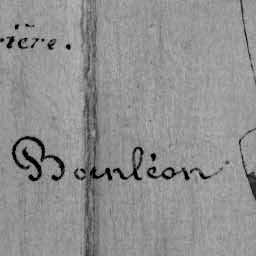 rière.
Boinléon